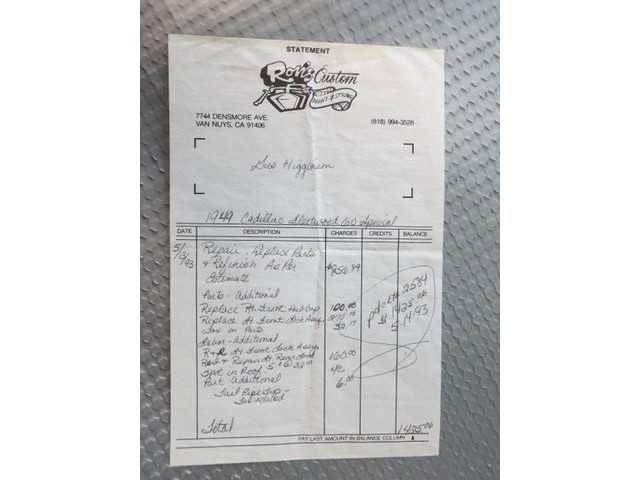 STATEMENT
Ron's Custom
PAINT & STYLING
7744 DENSMORE AVE.
VAN NUYS, CA 91406
(818) 994-3528
Gus Higginson
1949 Cadillac Fleetwood 60 Special
DATE DESCRIPTION CHARGES CREDITS BALANCE
5/13/93 Repair, Replace Parts
& Refinish As Per $856.89
Estimate
Parts - Additional
Replace Rt. Front Hub Cap 100.00
Replace Rt. Front Lock Assy
Tax on Parts 32.17
Labor - Additional
R&R Rt Front Lock Assy
& Repair Rt. Rear Lock 160.00
Spot in Roof
Part Additional 6.00
Tail Pipe Tip -
included
pd ck# 2584
$1425.06
5-14-93
Total 1425.06
PAY LAST AMOUNT IN BALANCE COLUMN